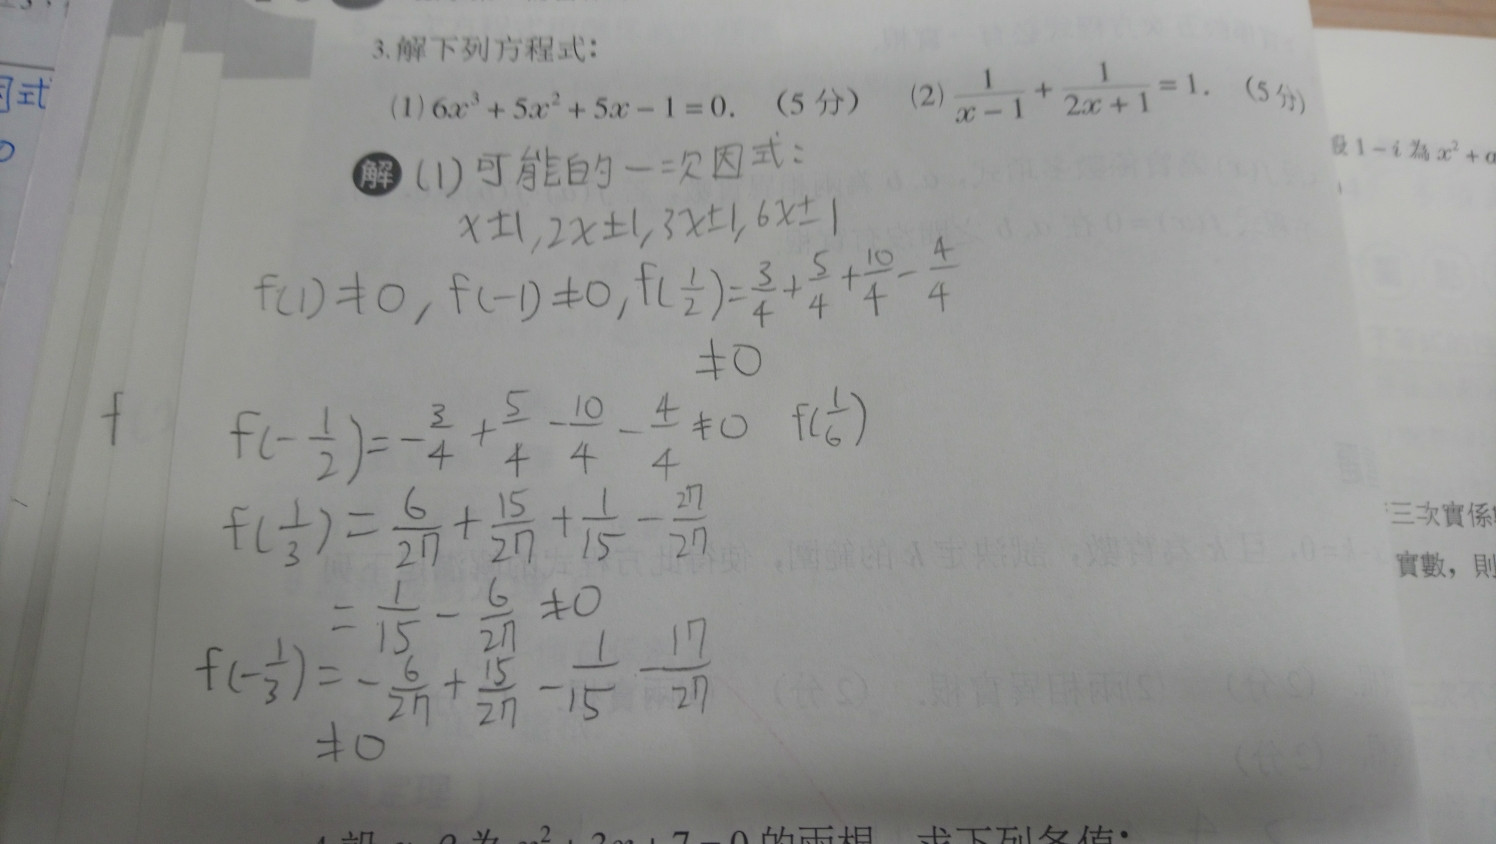 因式
0
3.解下列方程式：
(1) 6x³ + 5x² + 5x − 1 = 0. （5分） (2) 1/(x − 1) + 1/(2x + 1) = 1. （5分）
解 (1) 可能的一次因式：
x±1, 2x±1, 3x±1, 6x±1
f(1) ≠ 0, f(-1) ≠ 0, f(1/2) = 3/4 + 5/4 + 10/4 − 4/4
≠ 0
f f(-1/2) = −3/4 + 5/4 − 10/4 − 4/4 ≠ 0 f(1/6)
f(1/3) = 6/27 + 15/27 + 1/15 − 27/27
= 1/15 − 6/27 ≠ 0
f(-1/3) = −6/27 + 15/27 − 1/15 − 17/27
≠ 0
1 − i 為 x² +
三次實係
實數，則
的兩根，求下列各值：